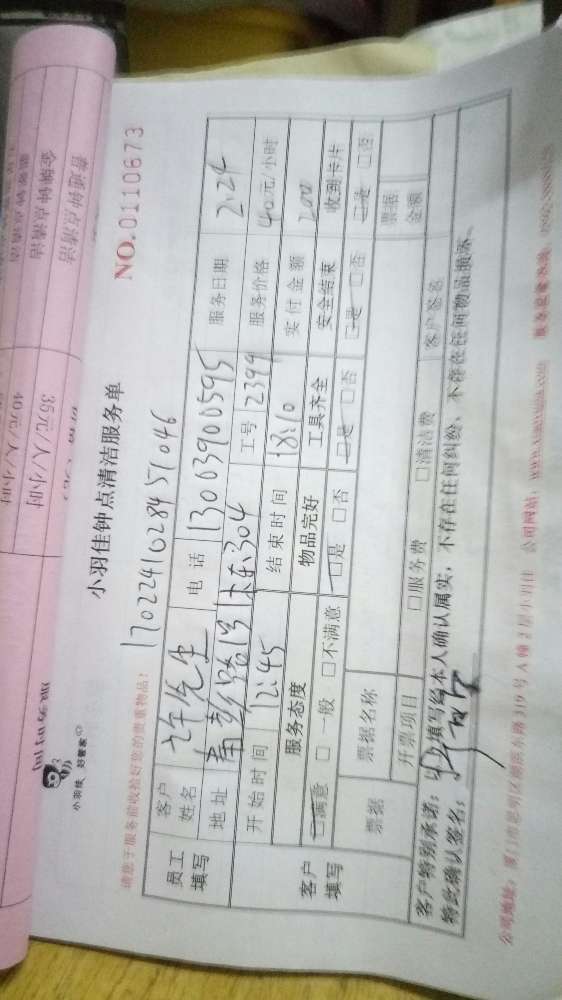 小羽佳 好管家
小羽佳钟点清洁服务单
NO.0110673
请您于服务前收拾好您的贵重物品!
1702241028451046
员工填写
客户姓名 许先生 电话 13003900595 服务日期 2.24
地址 工号 2399 服务价格 40元/小时
开始时间 12:45 结束时间 18:10 实付金额 200
客户填写
服务态度 物品完好 工具齐全 安全结束 收到卡片
□满意 □一般 □不满意 □是 □否 □是 □否 □是 □否 □是 □否
票据 票据名称 票据金额
开票项目 □服务费 □清洁费 客户签名
客户特别承诺:以上填写经本人确认属实,不存在任何纠纷,不存在任何物品损坏。
特此确认签名:
公司地址:厦门市思明区湖滨东路319号A幢2层小羽佳 公司网站:
35元/人/小时
40元/人/小时